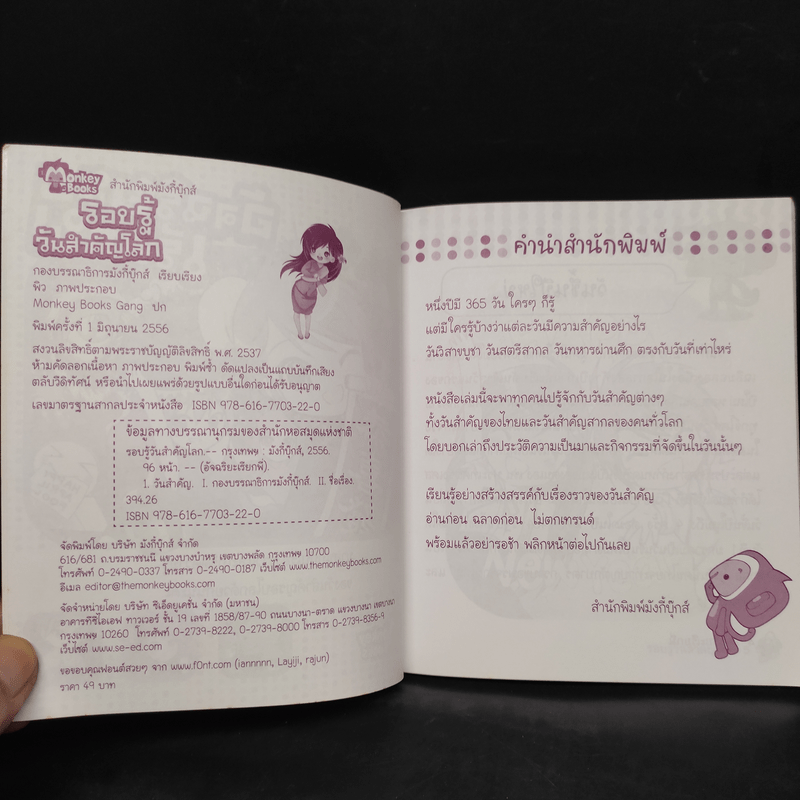 Monkey Books
สำนักพิมพ์มังกี้บุ๊กส์
รอบรู้
วันสำคัญโลก
กองบรรณาธิการมังกี้บุ๊กส์ เรียบเรียง
พิว ภาพประกอบ
Monkey Books Gang ปก
พิมพ์ครั้งที่ 1 มิถุนายน 2556
สงวนลิขสิทธิ์ตามพระราชบัญญัติลิขสิทธิ์ พ.ศ. 2537
ห้ามคัดลอกเนื้อหา ภาพประกอบ พิมพ์ซ้ำ ดัดแปลงเป็นแถบบันทึกเสียง
ตลับวีดิทัศน์ หรือนำไปเผยแพร่ด้วยรูปแบบอื่นใดก่อนได้รับอนุญาต
เลขมาตรฐานสากลประจำหนังสือ ISBN 978-616-7703-22-0
ข้อมูลทางบรรณานุกรมของสำนักหอสมุดแห่งชาติ
รอบรู้วันสำคัญโลก.-- กรุงเทพฯ : มังกี้บุ๊กส์, 2556.
96 หน้า. -- (อัจฉริยะเรียกพี่).
1. วันสำคัญ. I. กองบรรณาธิการมังกี้บุ๊กส์. II. ชื่อเรื่อง.
394.26
ISBN 978-616-7703-22-0
จัดพิมพ์โดย บริษัท มังกี้บุ๊กส์ จำกัด
616/681 ถ.บรมราชชนนี แขวงบางบำหรุ เขตบางพลัด กรุงเทพฯ 10700
โทรศัพท์ 0-2490-0337 โทรสาร 0-2490-0187 เว็บไซต์ www.themonkeybooks.com
อีเมล editor@themonkeybooks.com
จัดจำหน่ายโดย บริษัท ซีเอ็ดยูเคชั่น จำกัด (มหาชน)
อาคารทีซีไอเอฟ ทาวเวอร์ ชั้น 19 เลขที่ 1858/87-90 ถนนบางนา-ตราด แขวงบางนา เขตบางนา
กรุงเทพฯ 10260 โทรศัพท์ 0-2739-8222, 0-2739-8000 โทรสาร 0-2739-8356-9
เว็บไซต์ www.se-ed.com
ขอขอบคุณฟอนต์สวยๆ จาก www.f0nt.com (iannnnn, Layiji, rajun)
ราคา 49 บาท
คำนำสำนักพิมพ์
หนึ่งปีมี 365 วัน ใครๆ ก็รู้
แต่มีใครรู้บ้างว่าแต่ละวันมีความสำคัญอย่างไร
วันวิสาขบูชา วันสตรีสากล วันทหารผ่านศึก ตรงกับวันที่เท่าไหร่
หนังสือเล่มนี้จะพาทุกคนไปรู้จักกับวันสำคัญต่างๆ
ทั้งวันสำคัญของไทยและวันสำคัญสากลของคนทั่วโลก
โดยบอกเล่าถึงประวัติความเป็นมาและกิจกรรมที่จัดขึ้นในวันนั้นๆ
เรียนรู้อย่างสร้างสรรค์กับเรื่องราวของวันสำคัญ
อ่านก่อน ฉลาดก่อน ไม่ตกเทรนด์
พร้อมแล้วอย่ารอช้า พลิกหน้าต่อไปกันเลย
สำนักพิมพ์มังกี้บุ๊กส์